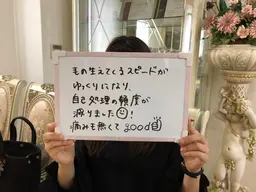 毛の生えてくるスピードが
ゆっくりになり、
自己処理の頻度が
減りました☺!
痛みも無くてgood